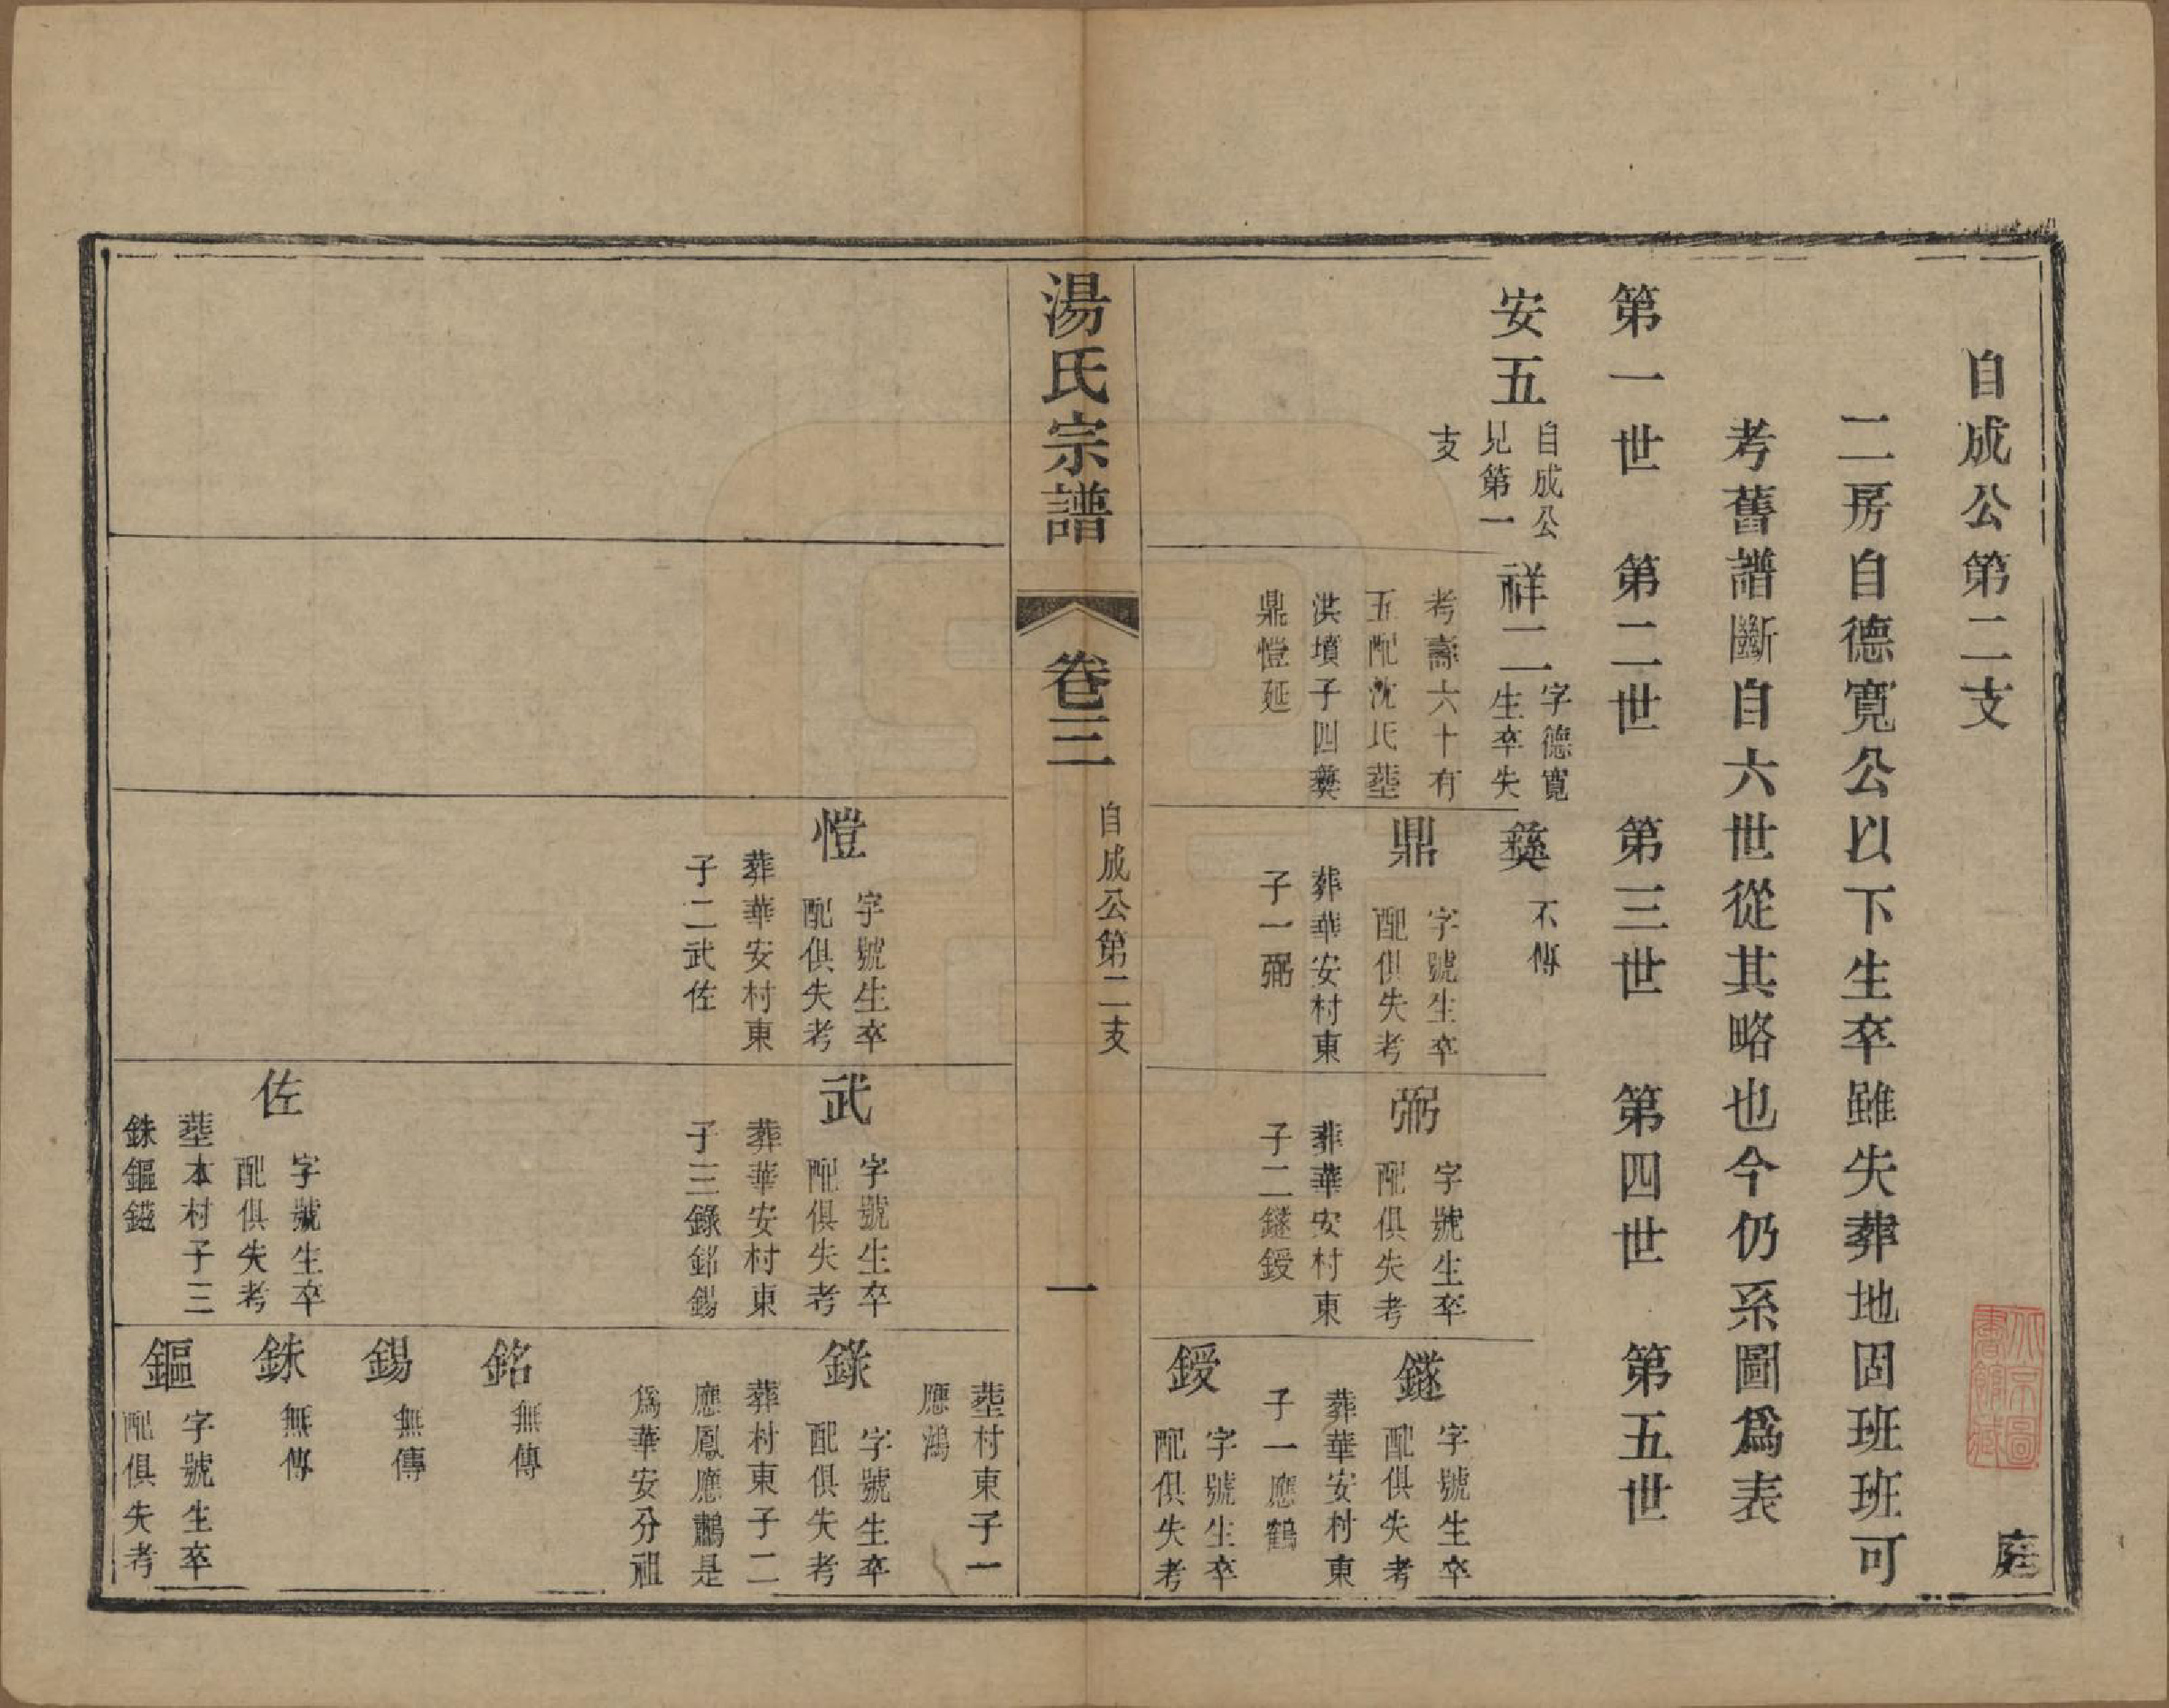 自成公第二支
庭
二房自德寬公以下生卒雖失葬地固班班可
考舊譜斷自六世從其略也今仍系圖爲表
第一世 第二世 第三世 第四世 第五世
安五
自成公
見第一
支
祥二
字德寬
生卒失
考壽六十有
五配沈氏塟
洪墳子四彜
鼎愷延
彜
不傳
鼎
字號生卒
配俱失考
葬華安村東
子一弼
弼
字號生卒
配俱失考
葬華安村東
子二鐩鍐
鐩
字號生卒
配俱失考
葬華安村東
子一應鶴
鍐
字號生卒
配俱失考
湯氏宗譜
卷三
自成公第二支
一
塟村東子一
應鴻
愷
字號生卒
配俱失考
葬華安村東
子二武佐
武
字號生卒
配俱失考
葬華安村東
子三錄銘錫
錄
字號生卒
配俱失考
葬村東子二
應鳳應鷫是
爲華安分祖
銘
無傳
錫
無傳
佐
字號生卒
配俱失考
塟本村子三
銖鏂鎰
銖
無傳
鏂
字號生卒
配俱失考